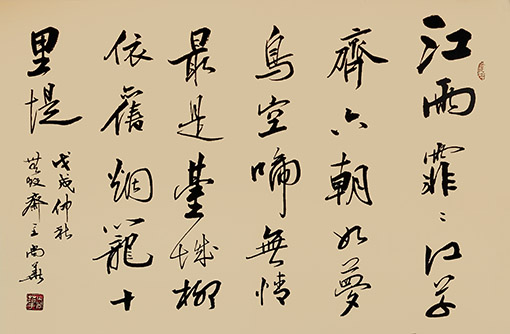 江雨霏〻江草
齊六朝如夢
鳥空啼無情
最是臺城柳
依舊烟籠十
里堤
戊戌仲秋
齋主尚